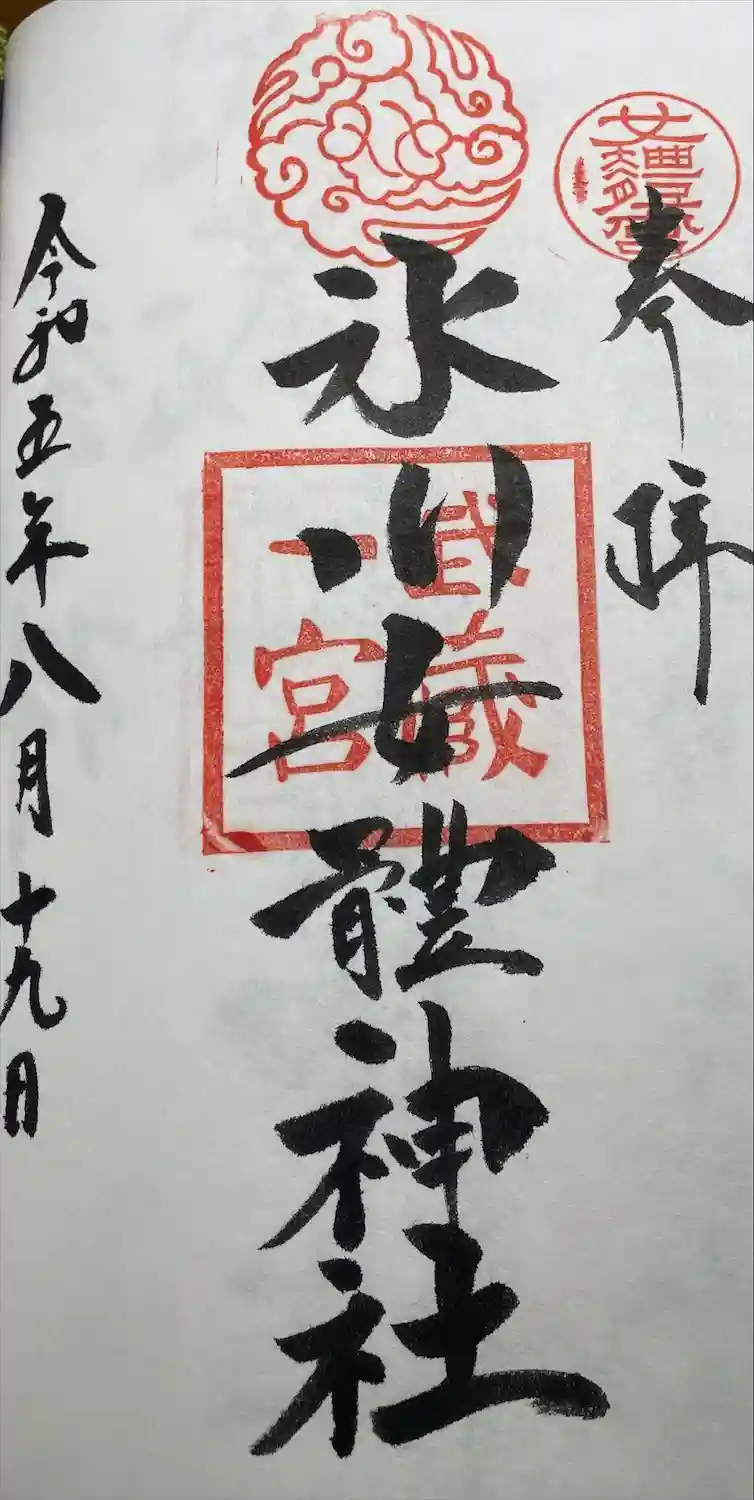 奉拝
氷川女體神社
武蔵
一宮
令和五年八月十九日